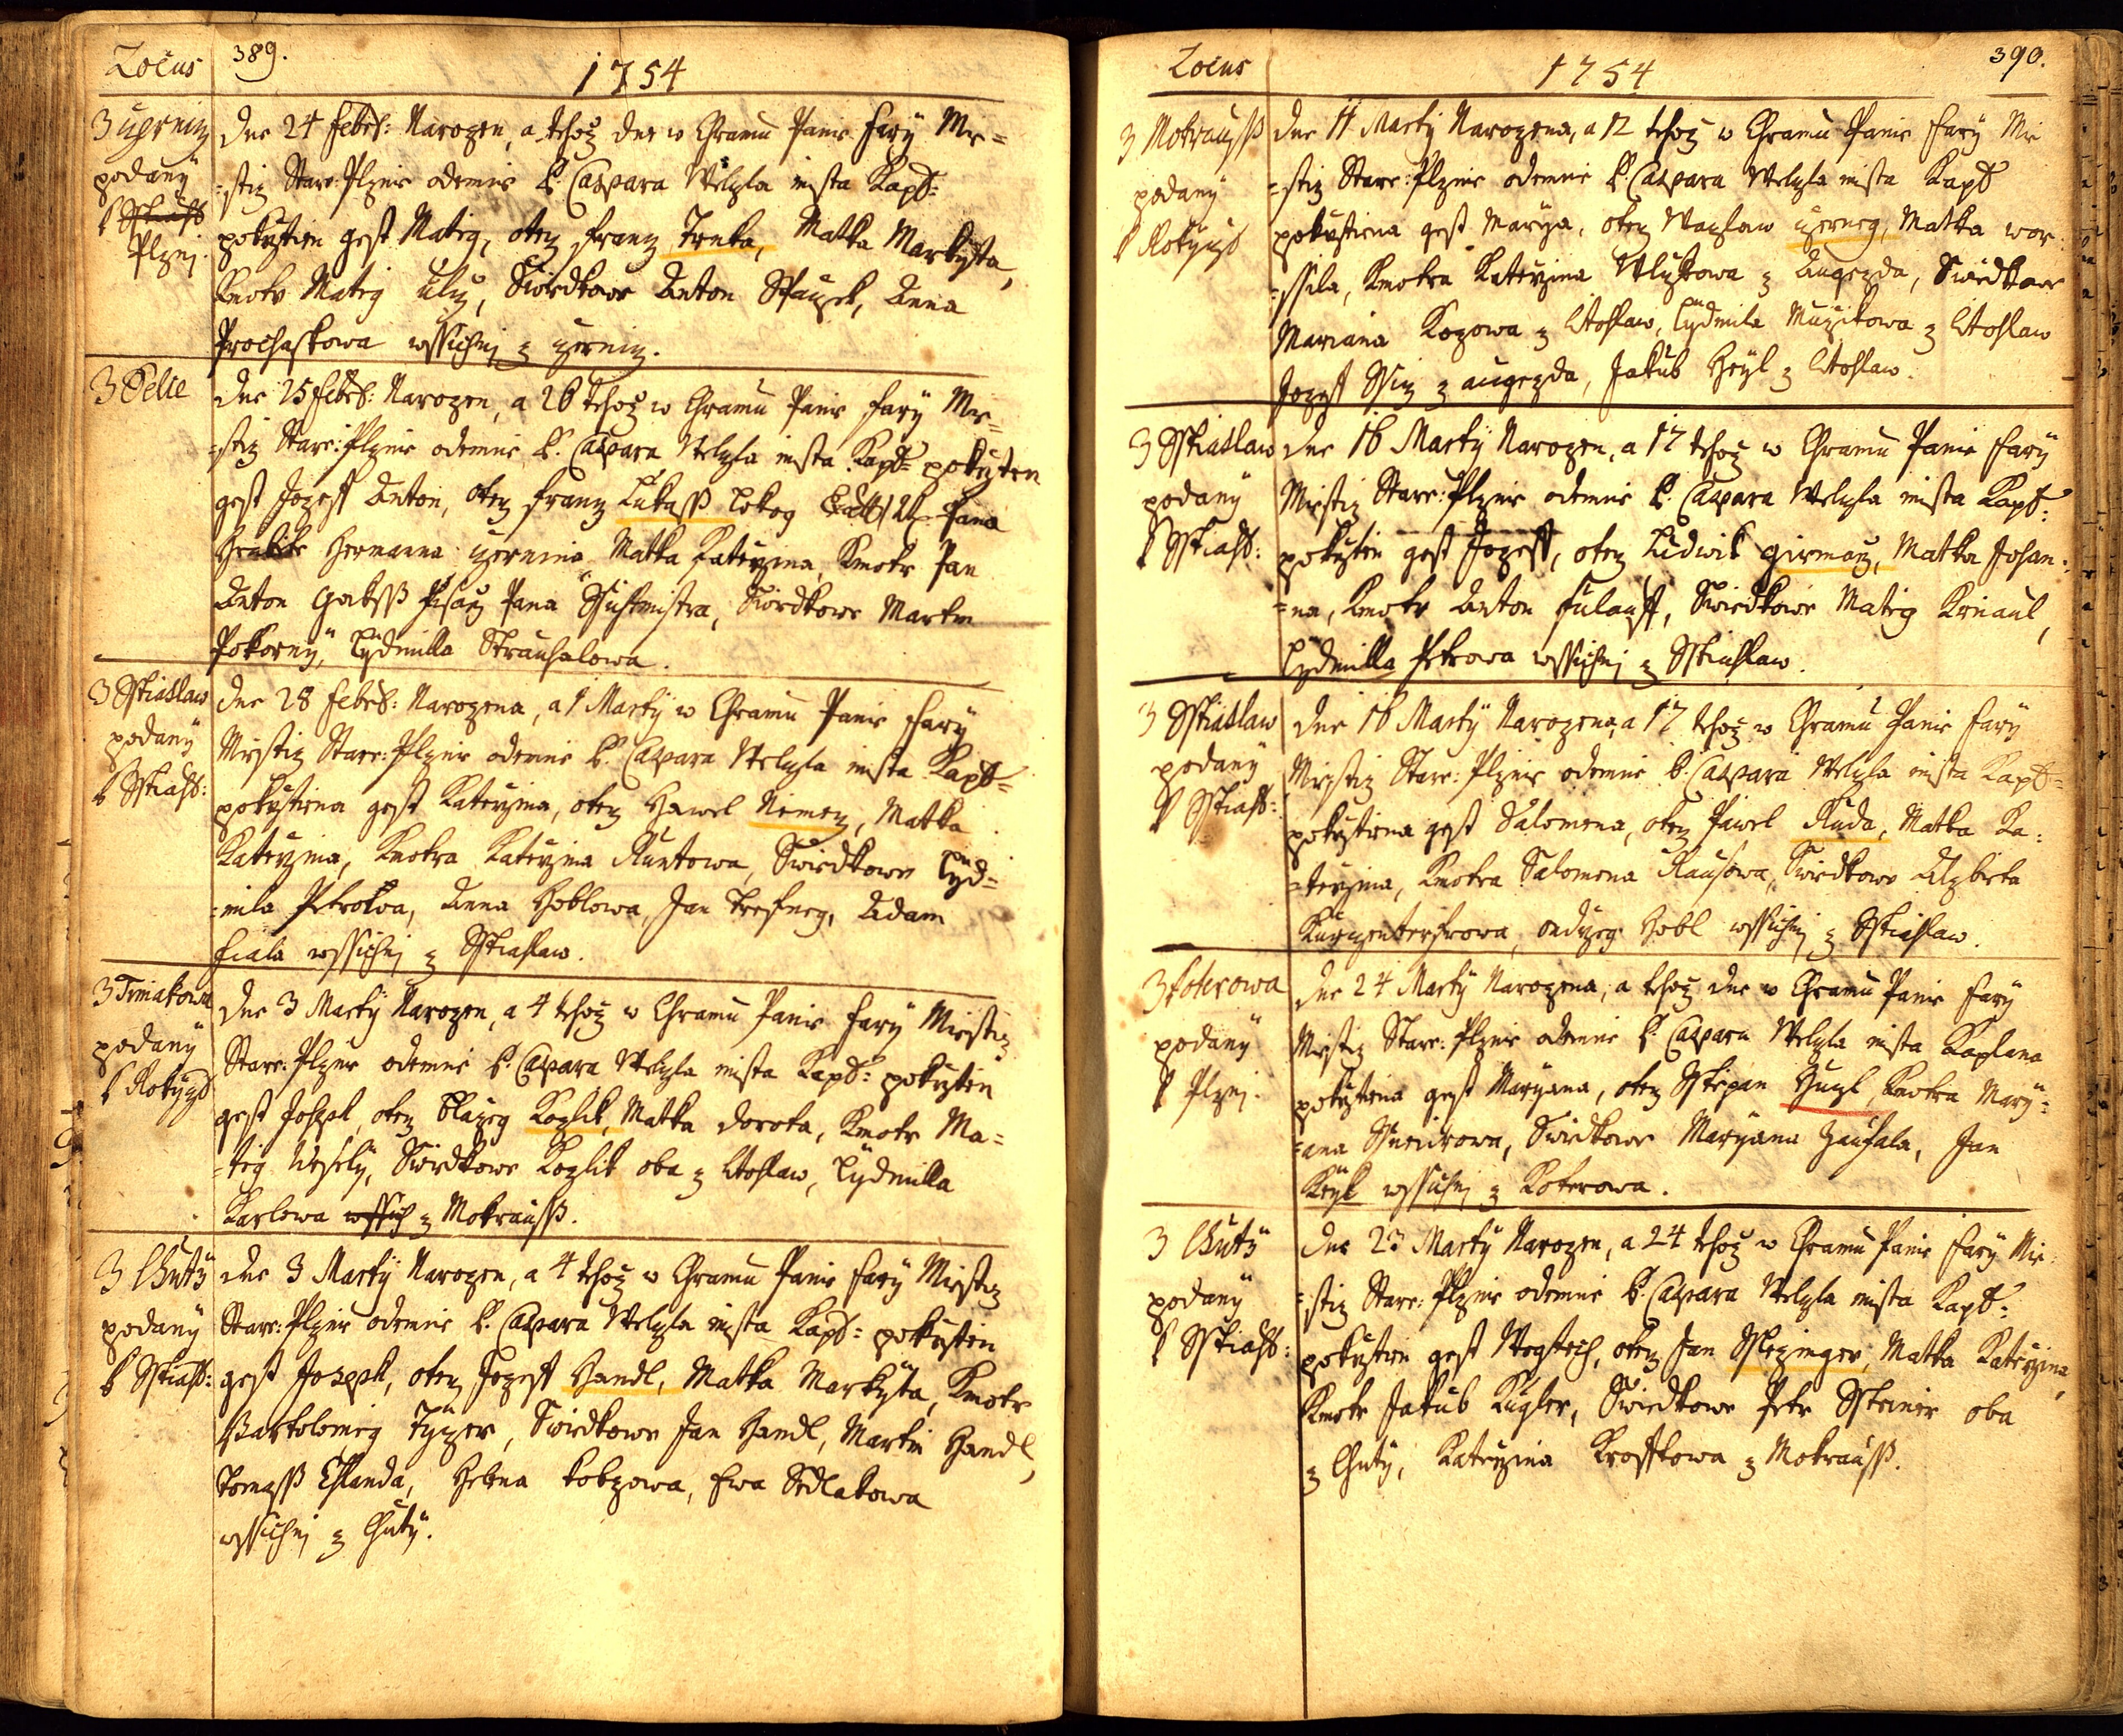 Locus 389.
1754
Z Czernicz
podaný
k Sskiahl:
Plzni.
Dne 24 Febr: Narozen, a tehož dne w Chramu Panie Fary Mie=
=stiz Stare: Plznie odemne k. Caspara Welzla mista Kapl:
pokrztien gest Matieg, otez Franz Trnka, Matka Markyta,
Kmotr Matieg Ulcz, Swiedkowe Anton Spaczek, Anna
Prochaskowa wssichni z Czernicz.
Z Pelie
Dne 25 Febr: Narozen, a 26 tehož w Chramu Panie Fary Mie=
=stiz Stare: Plznie odemne k. Caspara Welzla mista Kapl= pokrzten
gest Jozeff Anton, otez Franz Lukass Lokog Pana
Hrabie Hermanna Czernina Matka Katerzina, Kmotr Pan
Anton Pisarz Pana Swiedkowe Martin
Pokorný, Lydmilla Strauhalowa.
Z Sskiahlaw
podaný
k Sskiahl:
Dne 28 Febr: Narozena, a 1 Marty w Chramu Panie Fary
Miestiz Stare: Plznie odemne k. Caspara Welzla mista Kapl=
pokrztiena gest Katerzina, otez Hawel Nemez, Matka
Katerzina, Kmotra Katerzina Runtowa, Swiedkowe Lyd=
=mila Petrowa, Anna Hoblowa, Jan Adam
Fiala wssichni z Sskiahlaw.
Z Timakowa
podaný
k Rokyczl
Dne 3 Marty Narozen, a 4 tehož w Chramu Panie Fary Miestiz
Stare: Plznie odemne k. Caspara Welzla mista Kapl: pokrztien
gest Joseph, otez Blazieg Kozlik, Matka Dorota, Kmotr Ma=
=tieg Weselý, Swiedkowe Kozlik oba z Lhotaw, Lydmilla
Karlowa wssich z Mokrauss.
Z Chuty
podaný
k Sskiahl:
Dne 3 Marty Narozen, a 4 tehož w Chramu Panie Fary Miestiz
Stare: Plznie odemne k. Caspara Welzla mista Kapl: pokrztien
gest Joseph, otez Jozeff Handl, Matka Markyta, Kmotr
Bartolomieg Tyzer, Swiedkowe Jan Handl, Martin Handl,
Tomass Helena Kobzowa, Ewa Sedlakowa
wssichni z Chuty.
Locus 390.
1754
Z Mokrauss
podaný
k Rokyczl
Dne 11 Marty Narozena, a 12 tehož w Chramu Panie Fary Mie
=stiz Stare: Plznie odemne k. Caspara Welzla mista Kapl
pokrztiena gest Marya, otez Wazlaw Czerneg, Matka wor:
=ssila, Kmotra Katerzina Wlczkowa z Augezda, Swiedkowe
Mariana Kozowa z Lhotaw, Lydmila Muzikowa z Lhotaw
Jozeff z augezda, Jakub Heyl z Lhotaw.
Z Sskiahlaw
podaný
k Sskiahl:
Dne 16 Marty Narozen, a 17 tehož w Chramu Panie Fary
Miestiz Stare: Plznie odemne k. Caspara Welzla mista Kapl:
pokrztien gest Jozeff, otez Ludwik Girmarz, Matka Johan:
=na, Kmotr Anton Fulauff, Swiedkowe Matieg Kriaul,
Lydmilla Petrowa wssichni z Sskiahlaw.
Z Sskiahlaw
podaný
k Sskiahl:
Dne 16 Marty Narozena, a 17 tehož w Chramu Panie Fary
Miestiz Stare: Plznie odemne k. Caspara Welzla mista Kapl=
pokrztiena gest Salomena, otez Pawel Ruda, Matka Ka:
=terzina, Kmotra Salomena Rausowa, Swiedkowe Alzbieta
Ondrzeg Hobl wssichni z Sskiahlaw.
Z Koterowa
podaný
k Plzni.
Dne 24 Marty Narozena, a tehož dne w Chramu Panie Fary
Miestiz Stare: Plznie odemne k. Caspara Welzla mista Kaplana
pokrztiena gest Maryana, otez Sstiepan Hugl, Kmotra Mary:
=ana Sneidrowa, Swiedkowe Maryana Zaufala, Jan
Kregl wssichni z Koterowa.
Z Chuty
podaný
k Sskiahl:
Dne 23 Marty Narozen, a 24 tehož w Chramu Panie Fary Mie
=stiz Stare: Plznie odemne k. Caspara Welzla mista Kapl:
pokrztien gest Wogtiech, otez Jan Sslezinger, Matka Katerzina,
Kmotr Jakub Kugler, Swiedkowe Petr Ssteiner oba
z Chuty, Katerzina Kroftowa z Mokrauss.